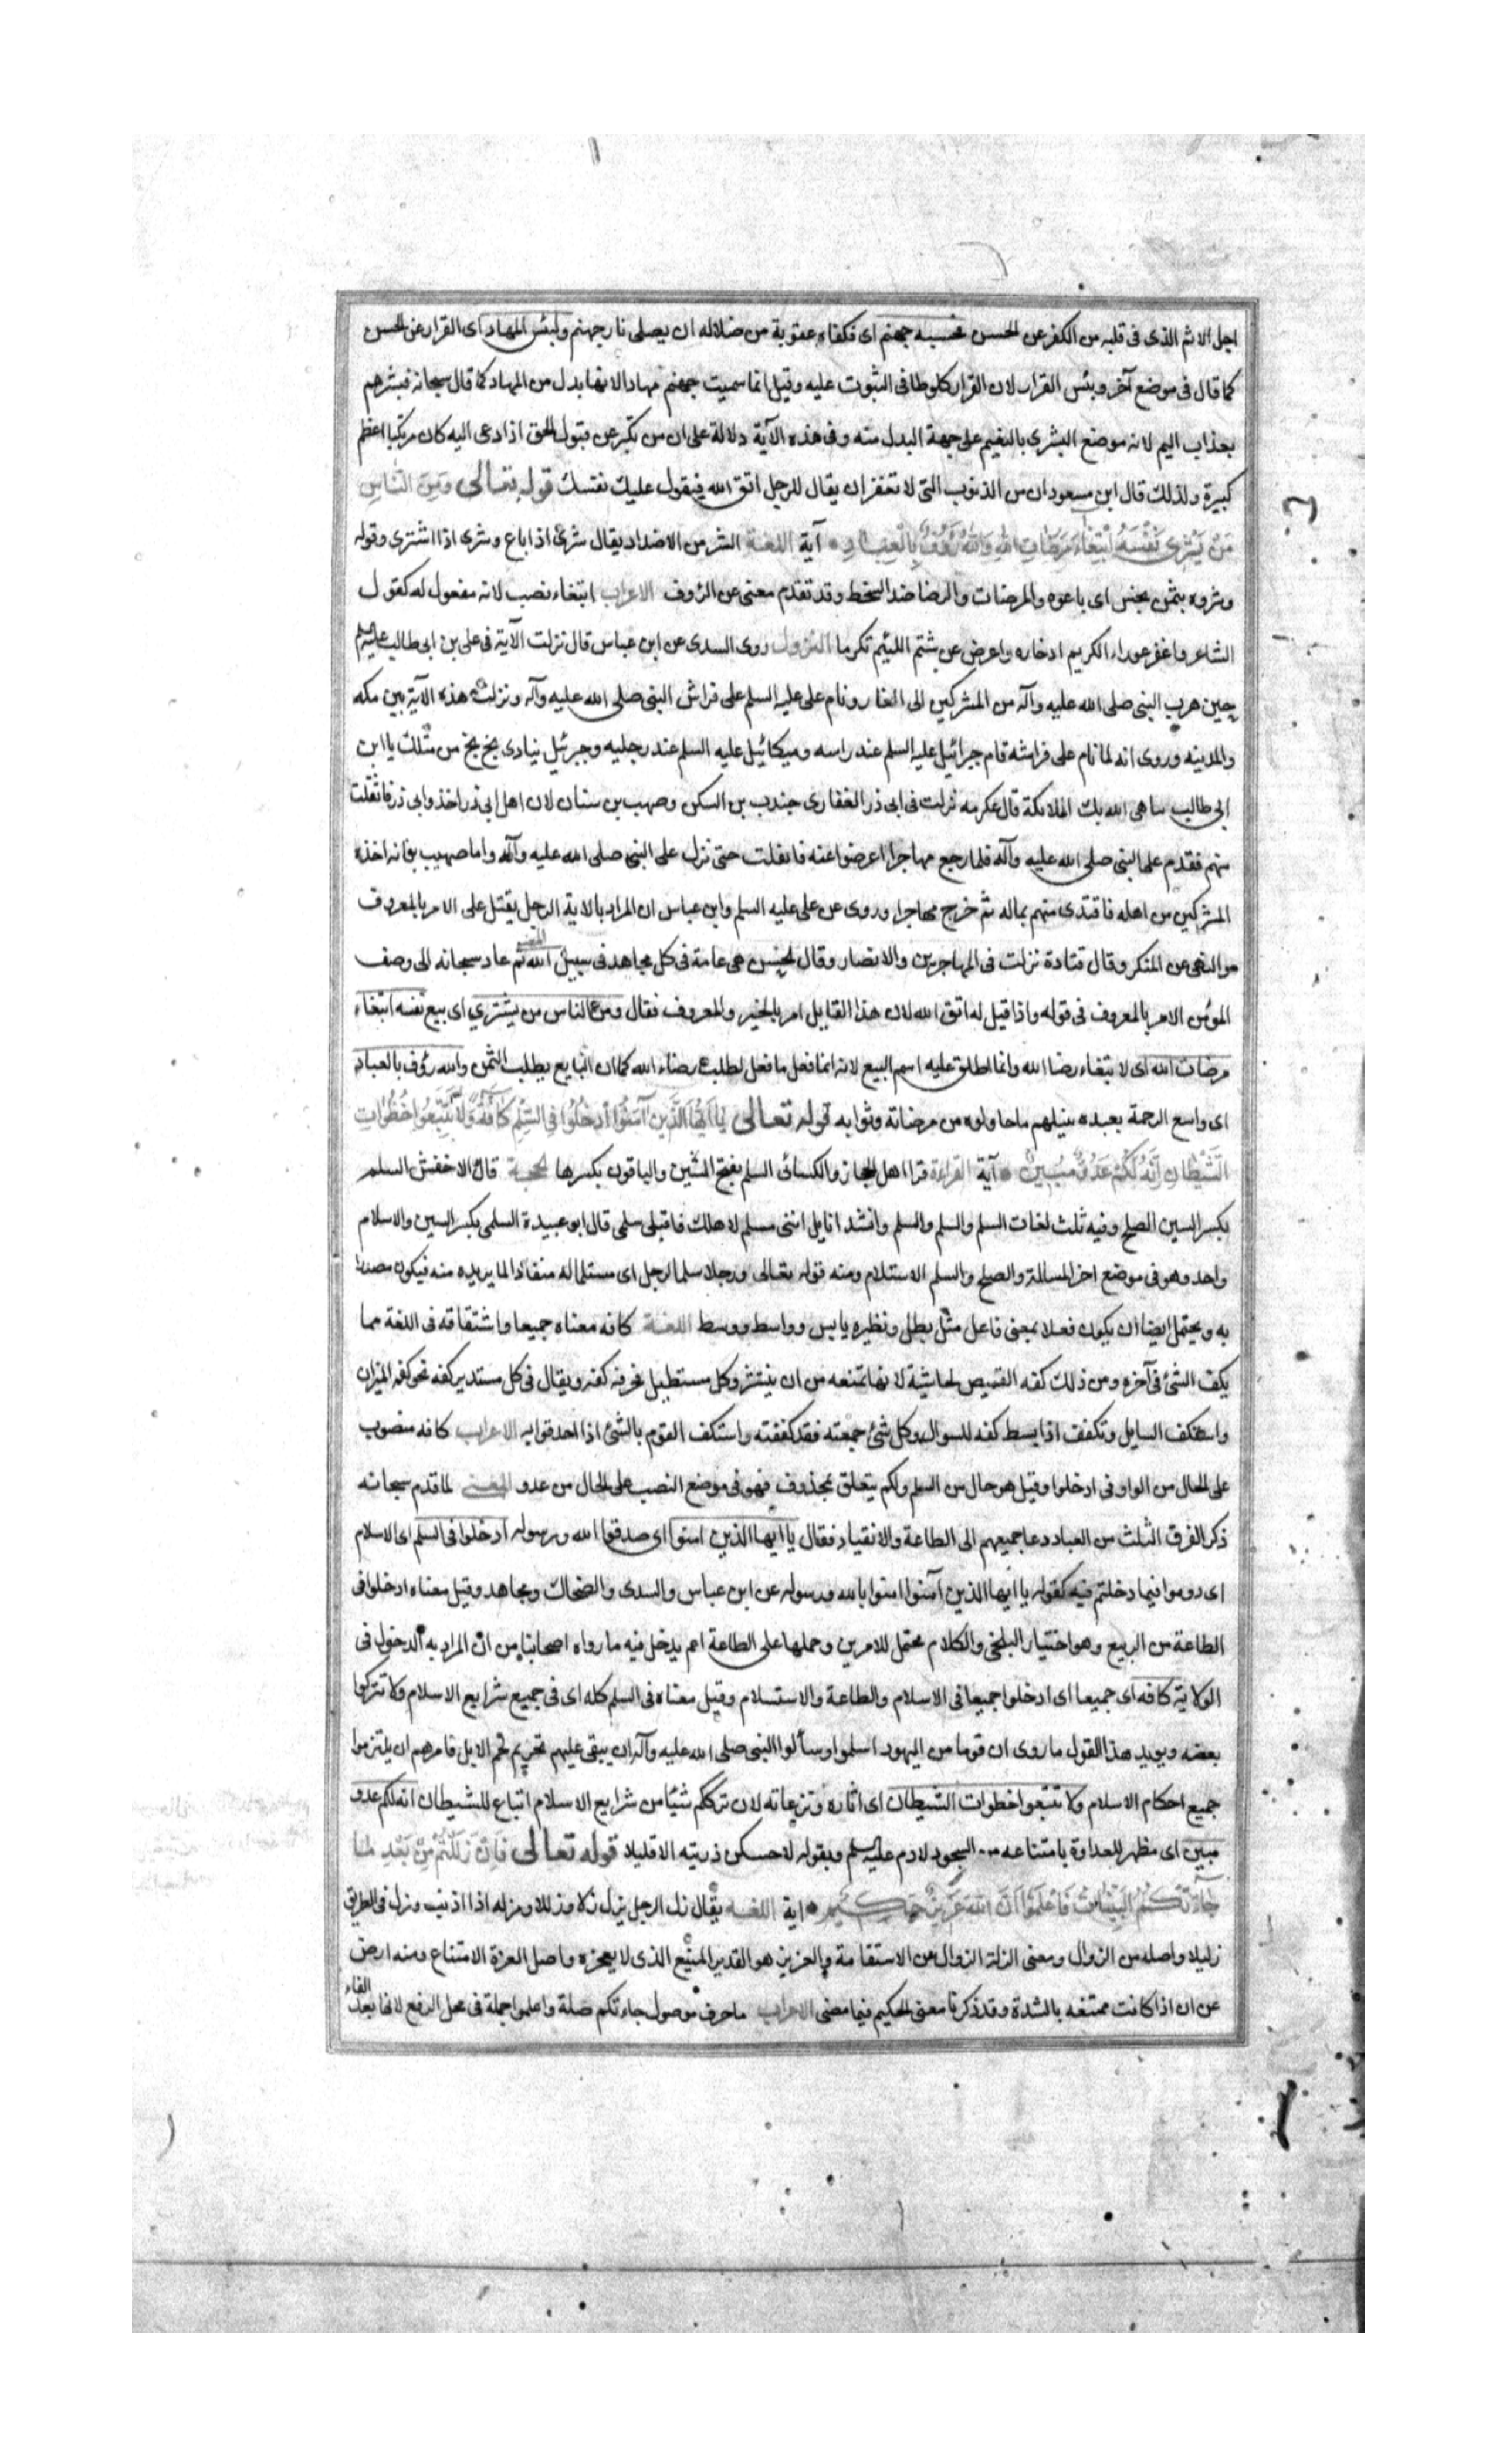 اجل الاثم الذى فى قلبه من الكفر عن الحسن فحسبه جهنم اى فكفاه عقوبة من ضلاله ان يصلى نار جهنم ولبئس المهاد اى القرار عن الحسن
كما قال فى موضع آخر وبئس القرار لان القرار كالوطا فى الثبوت عليه وقيل انما سميت جهنم مهادا لانها بدل من المهاد كما قال سبحانه فبشرهم
بعذاب اليم لانه موضع البشرى بالنعيم على جهة البدل منه وفى هذه الآية دلالة على ان من تكبر عن قبول الحق اذا دعى اليه كان مرتكبا اعظم
كبيرة ولذلك قال ابن مسعود ان من الذنوب التى لا تغفر ان يقال للرجل اتق الله فيقول عليك نفسك قوله تعالى وَمِنَ النَّاسِ
مَنْ يَشْرِى نَفْسَهُ ابْتِغَاءَ مَرْضَاتِ اللهِ وَاللهُ رَؤُفٌ بِالْعِبَادِ آية اللغة الشر من الاضداد يقال شرى اذا باع وشرى اذا اشترى وقوله
وشروه بثمن بخس اى باعوه والمرضات والرضا ضد السخط وقد تقدم معنى عن الرؤف الاعراب ابتغاء نصب لانه مفعول له كقول
الشاعر واغفر عوراء الكريم ادخاره واعرض عن شتم اللئيم تكرما النزول روى السدى عن ابن عباس قال نزلت الآية فى على بن ابى طالب عليه السلم
حين هرب النبى صلى الله عليه وآله من المشركين الى الغار ونام على عليه السلم على فراش النبى صلى الله عليه وآله ونزلت هذه الآية بين مكه
والمدينه وروى انه لما نام على فراشه قام جبرائيل عليه السلم عند راسه وميكائيل عليه السلم عند رجليه وجبرئيل ينادى بخ بخ من مثلك يا ابن
ابى طالب يباهى الله بك الملائكة قال عكرمه نزلت فى ابى ذر الغفارى جندب بن السكن وصهيب بن سنان لان اهل ابى ذر اخذوا ابى ذر فانفلت
منهم فقدم على النبى صلى الله عليه وآله فلما رجع مهاجرا اعرضوا عنه فانفلت حتى نزل على النبى صلى الله عليه وآله واما صهيب فانه اخذه
المشركين من اهله فافتدى منهم بماله ثم خرج مهاجرا وروى عن على عليه السلم وابن عباس ان المراد بالاية الرجل يقتل على الامر بالمعروف
والنهى عن المنكر وقال قتادة نزلت فى المهاجرين والانصار وقال الحسن هى عامة فى كل مجاهد فى سبيل الله المعنى ثم عاد سبحانه الى وصف
المؤمن الامر بالمعروف فى قوله واذا قيل له اتق الله لان هذا القايل امر بالخير والمعروف فقال ومن الناس من يشترى اى يبيع نفسه ابتغاء
مرضات الله اى لابتغاء رضا الله وانما اطلق عليه اسم البيع لانه انما فعل ما فعل لطلب رضاء الله كما ان البايع يطلب الثمن والله رؤف بالعباد
اى واسع الرحمة بعبده ينيلهم ما حاولوه من مرضاته وثوابه قوله تعالى يَا اَيُّهَا الَّذِينَ آمَنُوا ادْخُلُوا فِى السِّلْمِ كَافَّةً وَلَا تَتَّبِعُوا خُطُوَاتِ
الشَّيْطَانِ اِنَّهُ لَكُمْ عَدُوٌّ مُبِينٌ آية القراءة قرا اهل الحجاز والكسائى السلم بفتح السين والباقون بكسرها الحجة قال الاخفش السلم
بكسر السين الصلح وفيه ثلث لغات السلم والسلم والسلم وانشد انايل اننى مسلم لاهلك فاقبلى سلمى قال ابو عبيدة السلمى بكسر السين والاسلام
واحد وهو فى موضع اخر المسالمة والصلح والسلم الاستلام ومنه قوله تعالى ورجلا سلما لرجل اى مستلما له منقادا لما يريده منه فيكون مصدرا
به ويحتمل ايضا ان يكون فعلا بمعنى فاعل مثل بطل ونظيره يابس وواسط ووسط اللغة كافه معناه جميعا واشتقاقه فى اللغة مما
يكف الشئ فى آخره ومن ذلك كفه القميص لحاشيته لانها تمنعه من ان ينتشر وكل مستطيل فحرفه كفه ويقال فى كل مستدير كفه نحو كفه الميزان
واستكف السايل وتكفف اذا بسط كفه للسوال وكل شئ جمعته فقد كففته واستكف القوم بالشئ اذا احدقوا به الاعراب كافه منصوب
على الحال من الواو فى ادخلوا وقيل هو حال من السلم ولكم يتعلق بمحذوف فهو فى موضع النصب على الحال من عدو المعنى لما قدم سبحانه
ذكر الفرق الثلث من العباد دعا جميعهم الى الطاعة والانقياد فقال يا ايها الذين امنوا اى صدقوا الله ورسوله ادخلوا فى السلم اى الاسلام
اى دوموا فيما دخلتم فيه كقوله يا ايها الذين آمنوا امنوا بالله ورسوله عن ابن عباس والسدى والضحاك ومجاهد وقيل معناه ادخلوا فى
الطاعة من الربيع وهو اختيار البلخى والكلام محتمل للامرين وحملها على الطاعة اعم يدخل فيه ما رواه اصحابنا من ان المراد به الدخول فى
الولاية كافه اى جميعا اى ادخلوا جميعا فى الاسلام والطاعة والاستسلام وقيل معناه فى السلم كله اى فى جميع شرايع الاسلام ولا تتركوا
بعضه ويويد هذا القول ما روى ان قوما من اليهود اسلموا وسألوا النبى صلى الله عليه وآله ان يبقى عليهم تحريم لحم الابل فامرهم ان يلتزموا
جميع احكام الاسلام ولا تتبعوا خطوات الشيطان اى اثاره ونزعاته لان ترككم شيئا من شرايع الاسلام اتباع للشيطان انه لكم عدو
مبين اى مظهر للعداوة بامتناعه من السجود لادم عليه السلم وبقوله لاحتسكن ذريته الا قليلا قوله تعالى فَاِنْ زَلَلْتُمْ مِنْ بَعْدِ مَا
جَاءَتْكُمُ الْبَيِّنَاتُ فَاعْلَمُوا اَنَّ اللهَ عَزِيزٌ حَكِيمٌ اية اللغة يقال زل الرجل يزل زلا وزللا ومزله اذا اذنب وزل فى الطريق
زليلا واصله من الزوال ومعنى الزلة الزوال عن الاستقامة والعزيز هو القدير المنيع الذى لا يعجزه واصل العزة الامتناع ومنه ارض
عزاز اذا كانت ممتنعه بالشدة وقد ذكرنا معنى الحكيم فيما مضى الاعراب ما حرف موصول جاءتكم صلة واعلموا جملة فى محل الرفع لانها بعد الفاء